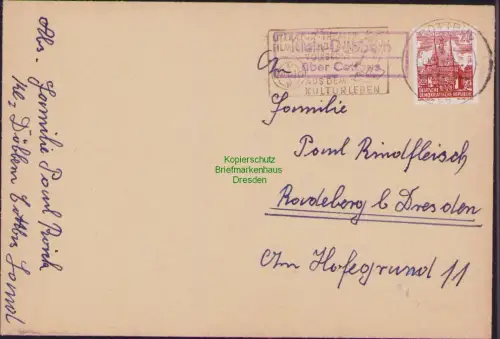 Klein Döbbern
über Cottbus
KULTURLEBEN
20
DEUTSCHE
DEMOKRATISCHE REPUBLIK
An
Familie
Paul Rindfleisch
Radeberg b Dresden
Am Hofegrund 11
Kopierschutz
Briefmarkenhaus
Dresden
Abs. Familie Paul
Kl. Döbbern Cottbus Land